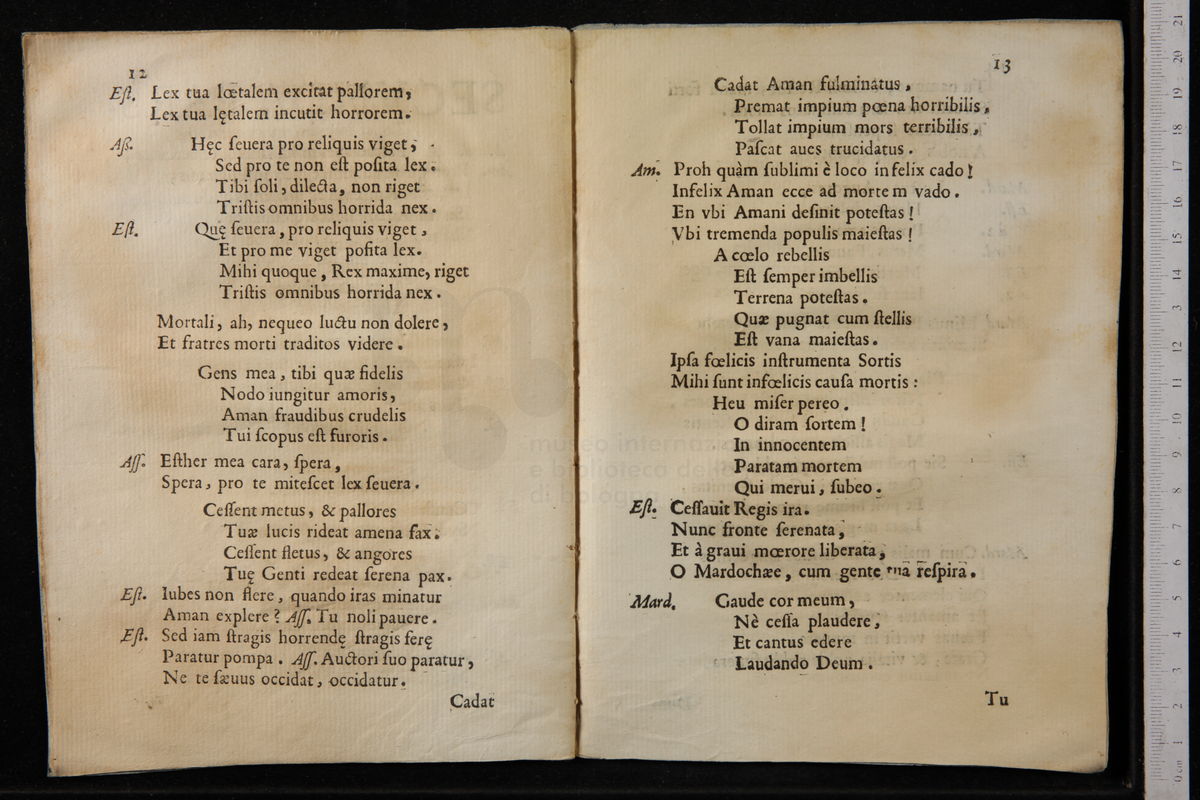 12
Eſt. Lex tua lœtalem excitat pallorem,
Lex tua lętalem incutit horrorem.
Aſſ. Hęc ſeuera pro reliquis viget,
Sed pro te non eſt poſita lex.
Tibi ſoli, dilecta, non riget
Triſtis omnibus horrida nex.
Eſt. Quę ſeuera, pro reliquis viget,
Et pro me viget poſita lex.
Mihi quoque, Rex maxime, riget
Triſtis omnibus horrida nex.
Mortali, ah, nequeo luctu non dolere,
Et fratres morti traditos videre.
Gens mea, tibi quæ fidelis
Nodo iungitur amoris,
Aman fraudibus crudelis
Tui ſcopus eſt furoris.
Aſſ. Eſther mea cara, ſpera,
Spera, pro te miteſcet lex ſeuera.
Ceſſent metus, & pallores
Tuæ lucis rideat amena fax.
Ceſſent fletus, & angores
Tuę Genti redeat ſerena pax.
Eſt. Iubes non flere, quando iras minatur
Aman explere? Aſſ. Tu noli pauere.
Eſt. Sed iam ſtragis horrendę ſtragis ferę
Paratur pompa. Aſſ. Auctori ſuo paratur,
Ne te ſæuus occidat, occidatur.
Cadat
13
Cadat Aman fulminatus,
Premat impium pœna horribilis,
Tollat impium mors terribilis,
Paſcat aues trucidatus.
Am. Proh quàm ſublimi è loco infelix cado!
Infelix Aman ecce ad mortem vado.
En vbi Amani definit poteſtas!
Vbi tremenda populis maieſtas!
A cœlo rebellis
Eſt ſemper imbellis
Terrena poteſtas.
Quæ pugnat cum ſtellis
Eſt vana maieſtas.
Ipſa fœlicis inſtrumenta Sortis
Mihi ſunt infœlicis cauſa mortis:
Heu miſer pereo.
O diram ſortem!
In innocentem
Paratam mortem
Qui merui, ſubeo.
Eſt. Ceſſauit Regis ira.
Nunc fronte ſerenata,
Et à graui mœrore liberata,
O Mardochæe, cum gente tua reſpira.
Mard. Gaude cor meum,
Nè ceſſa plaudere,
Et cantus edere
Laudando Deum.
Tu